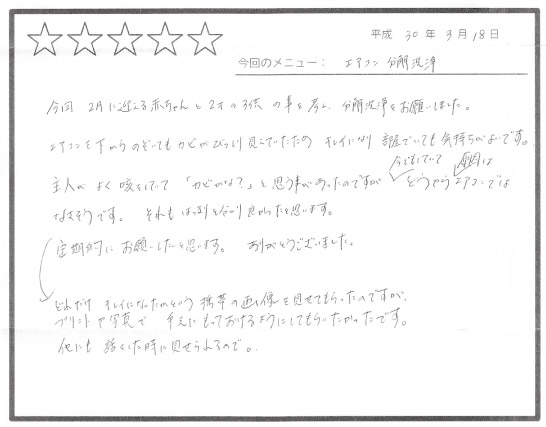 平成 30年 3月 18日
今回のメニュー： エアコン 分解洗浄
今回 2月に迎える赤ちゃんと2才の子供の事を考え、分解洗浄をお願いしました。
エアコンを下からのぞいてもカビがびっしり見えていたのがキレイになり 部屋でいても気持ちがよいです。
主人がよく咳をしていて「カビかな？」と思う事があったのですが
今もしていて
どうやら 原因は エアコンでは
なさそうです。それもはっきり分かり良かったと思います。
定期的にお願いしたいと思います。ありがとうございました。
どれだけキレイになったかという携帯の画像を見せてもらったのですが、
プリントや写真で 手元にもっておけるようにしてもらいたかったです。
他にも 話をした時に見せられるので。